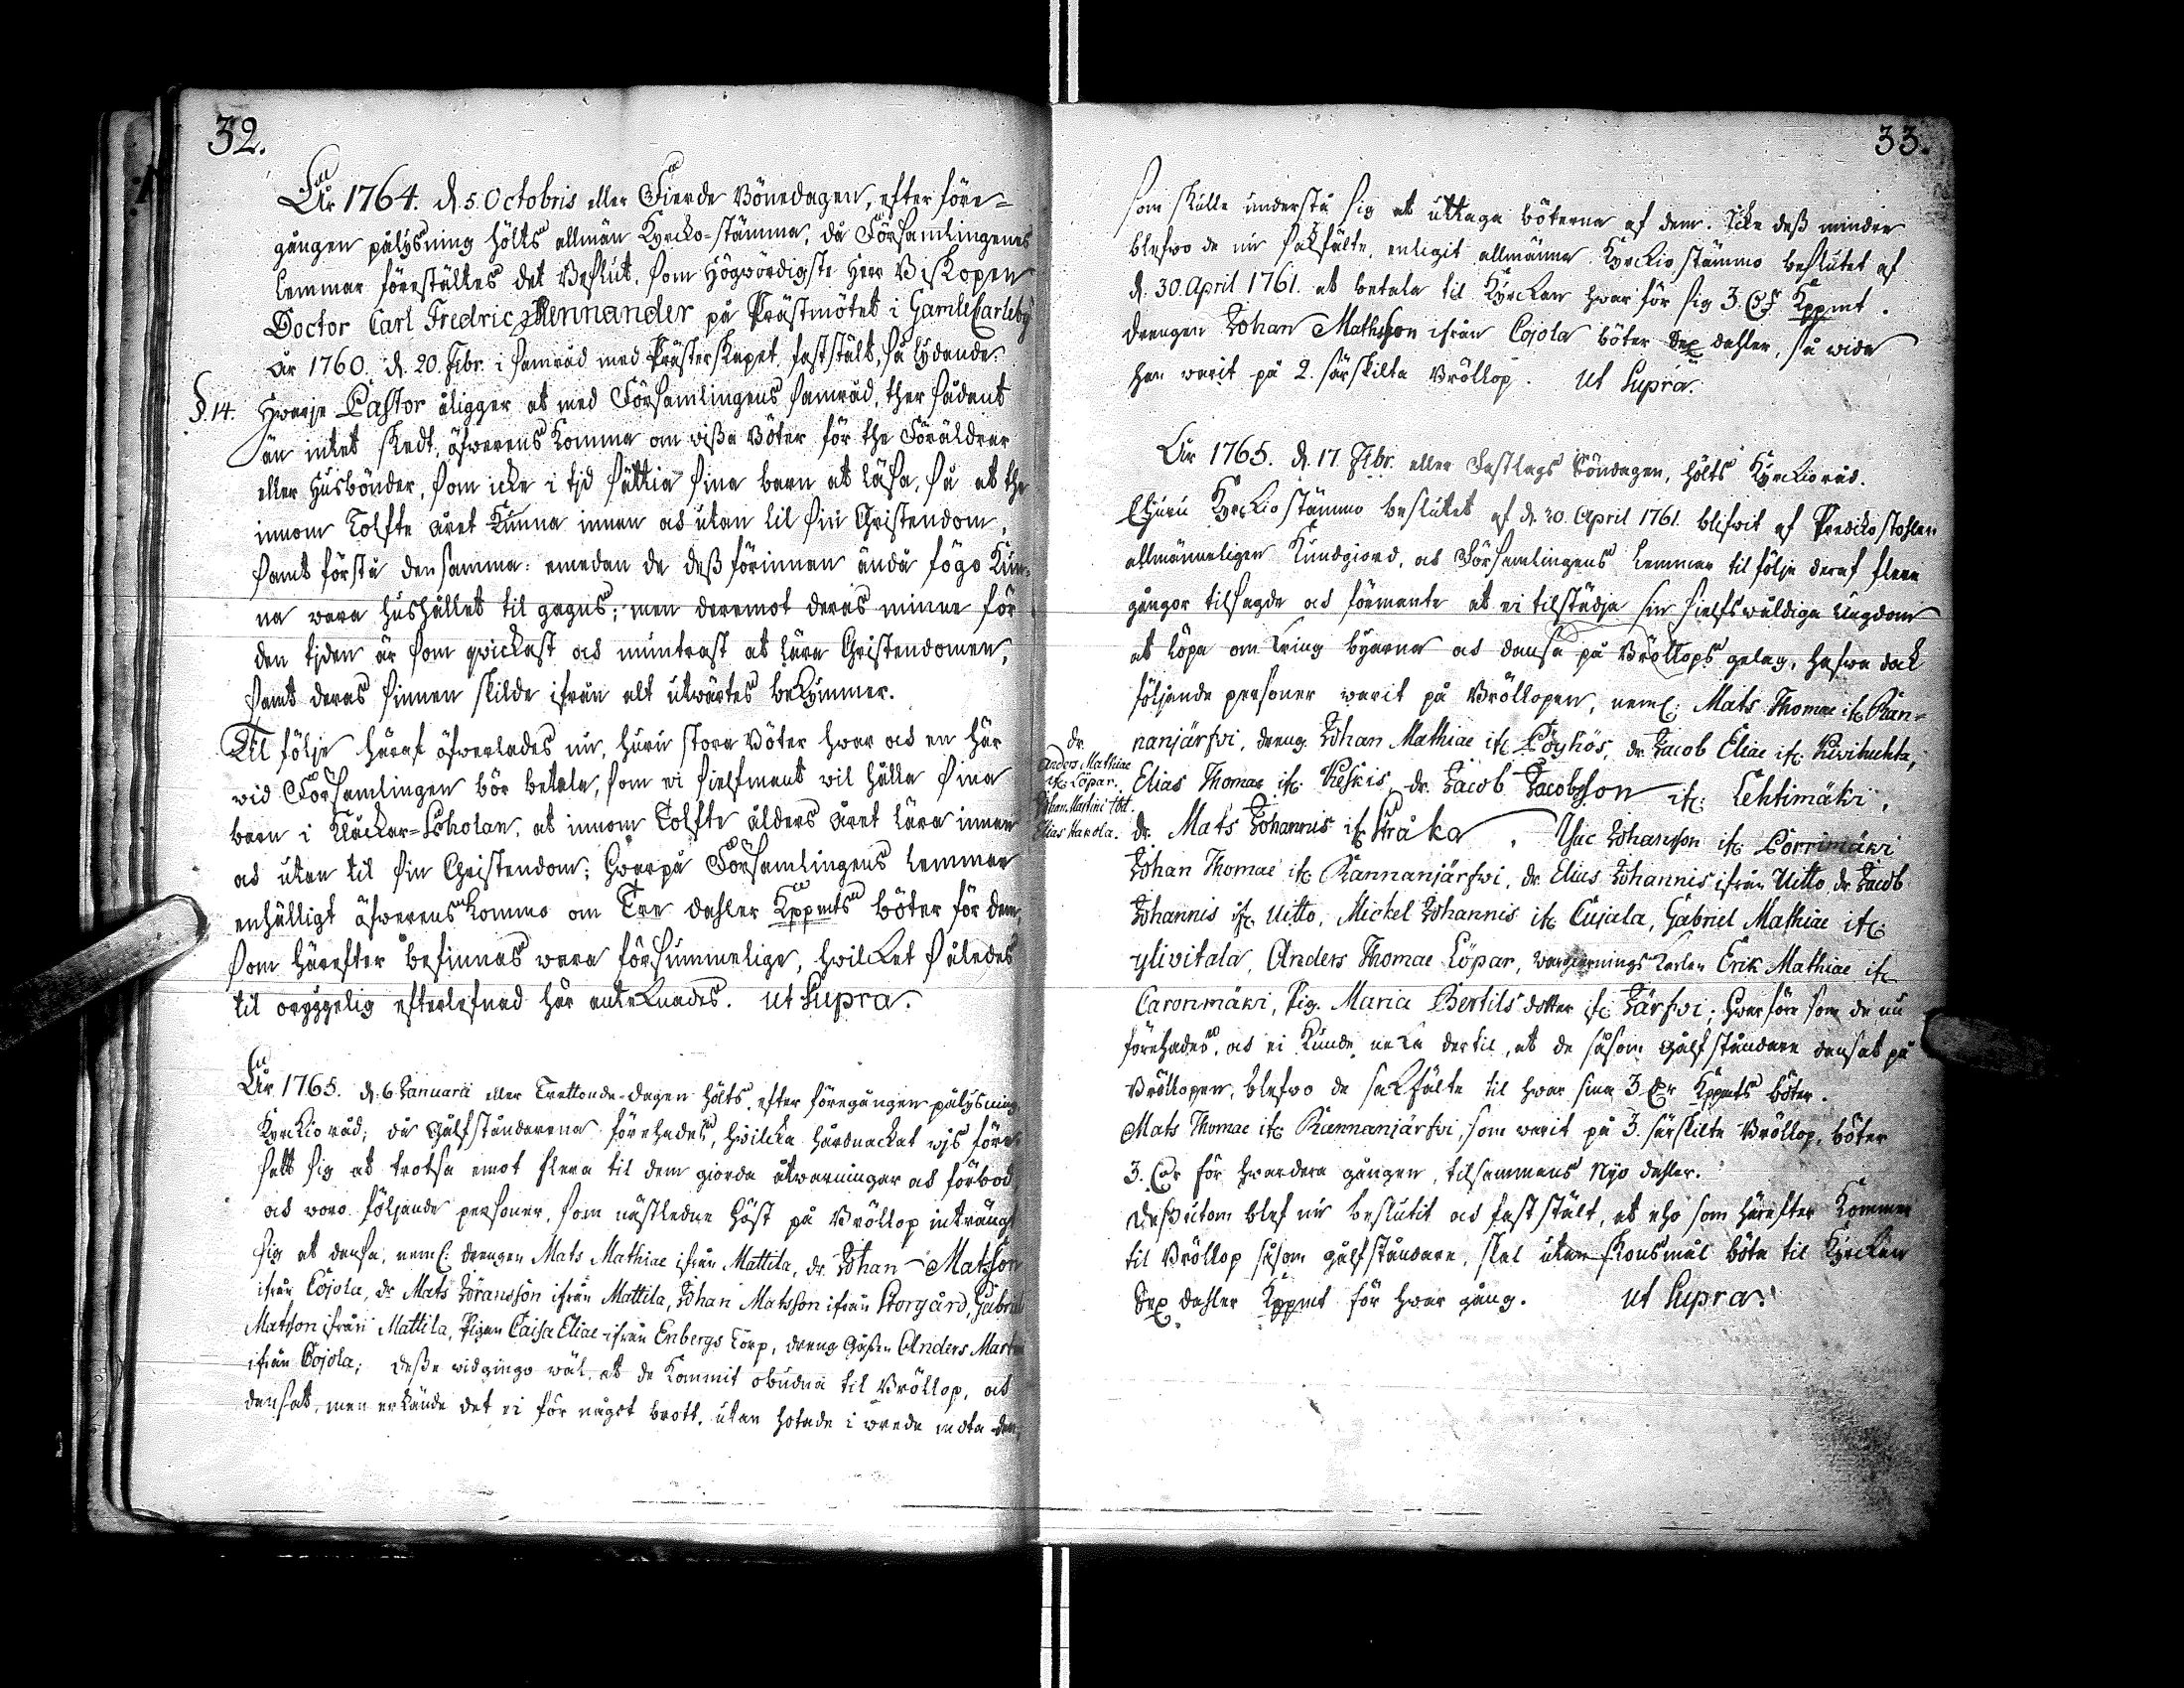 32.
År 1764. d. 5. Octobris eller Fierde Bönedagen, efter före-
gången pålysning hölts allmän Kyrcko-stämma, då Församlingenes
Lemmar föreställtes det Beslut, som Högwördigste Herr Biskopen
Doctor Carl Fredric Mennander på Prästmötet i GamleCarleby
År 1760. d. 20. Febr. i samråd med Prästerskapet, faststält, så lydande:
§. 14. Hwarje Pastor åligger at med Församlingens samråd, ther sådant
än intet skedt, öfwerens komma om wißa Böter för the Föräldrar
eller Husbönder, som icke i tjd sättia sina barn at läsa, så at the
innom Tolfte året kunna innan och utan til sin Christendom,
samt förstå den samma: emedan de deß förinnan ändå fögo kun-
na wara hushållet til gagns; men deremot deras minne för
den tjden är som qwickast och muntrast at lära Christendomen,
samt deras sinnen skilde ifrån alt utwärtes bekymmer.
Til följe häraf öfwerlades nu, huru stora Böter hwar och en här
wid Församlingen bör betala, som ei sielfmant wil hålla sina
barn i Kläckar-Scholan, at innom Tolfte ålders året lära innan
och utan til sin Christendom; Hwarpå Församlingens Lemmar
enhälligt öfwerens kommo om Tre daler Kppmts böter för dem,
som härefter befinnas wara försummelige, hwilket således
til oryggelig efterlefnad här anteknades. Ut Supra.
År 1765. d. 6 Januarii eller Trettonde-dagen hölts, efter föregången pålysning
Kyrckio råd; då Gålfståndarena förehades, hwilcka hårdnackat wjs före-
satt sig at trotsa emot flera til dem giorda åtwarningar och förbod,
och woro följande personer, som nästledne Höst på Bröllop inträngt
sig at dansa, neml: drengen Mats Mathiae ifrån Mattila, dr. Johan Matsson
ifrån Cojola, dr Mats Jöransson ifrån Mattila, Johan Matsson ifrån Storgård, Gabriel
Matsson ifrån Mattila, Pigan Caisa Eliae ifrån Enbergs Torp, dreng Gåßen Anders Martini
ifrån Cojola; deße widgingo wäl, at de kommit obudna til Bröllop, och
dansat, men erkände det ei för något brott, utan hotade i wrede möta den,
33.
som skulle understå sig at uttaga böterna af dem. Icke deß mindre
blefwo de nu sakfälte, enligit allmänna Kyrckio stämmo beslutet af
d. 30. April 1761. at betala til Kyrckan hwar för sig 3. Kppmt.
drengen Johan Mathsson ifrån Cojola böter Sex dahler, så wida
han warit på 2. särskilta Bröllop. Ut Supra.
År 1765. d. 17. Febr. eller Fastlags Söndagen, hölts Kyrckioråd.
Ehuru Kyrckiostämmo beslutet af d. 30. April 1761. blifwit af Predickostohlen
allmänneligen kundgiord, och Församlingens Lemmar til följe deraf flera
gångor tilsagde och förmante at ei tilstädja sin sielfswåldiga Ungdom
at löpa omkring byarna och dansa på Bröllops gelag, hafwa dock
följande personer warit på Bröllopen, neml: Mats Thomae if. Rän-
nanjärfwi, dreng. Johan Mathiae if. Pöyhös, dr. Jacob Eliae if. Kivihuhta,
dr.
Anders Mathiae
if. Löpar.
Johan Martini
Elias Harola.
Elias Thomae if. Keskis, dr. Jacob Jacobsson if. Lehtimäki,
dr. Mats Johannis if. Stråka, Isac Johansson if. Porrimäki
Johan Thomae if. Rännanjärfwi, dr. Elias Johannis ifrån Uitto, dr. Jacob
Johannis if. Uitto, Mickel Johannis if. Cujala, Gabriel Mathiae if.
ylivitala, Anders Thomae Löpar, Erik Mathiae if.
Caronmäki, Pig. Maria Bertils dotter if. Järfwi; Hwarföre som de nu
förehades, och ei kunde neka dertil, at de såsom Gålfståndare dansat på
Bröllopen, blefwo de sakfälte til hwar sina 3. Kppmts böter.
Mats Thomae if. Rännanjärfwi, som warit på 3. särskilta Bröllop, böter
3. för hwardera gången, tilsammans Nijo dahler.
Deßutom blef nu beslutit och faststält, at eho som härefter kommer
til Bröllop såsom gålfståndare, skal utan skonsmål böta til Kyrckan
Sex daler Kppmt för hwar gång. Ut Supra.